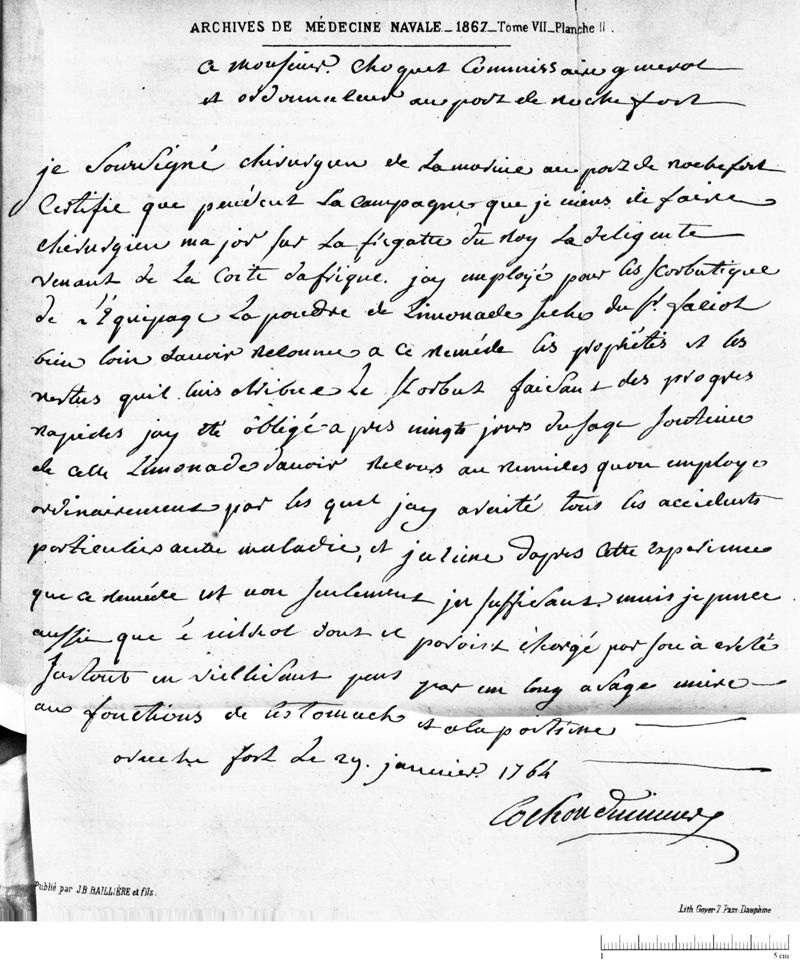 ARCHIVES DE MÉDECINE NAVALE_1867_Tome VII_Planche II.
a monsieur. choquet Commissaire general
et ordonnateur au port de rochefort
je soursigné chirurgien de La marine au port de rochefort
Certifie que pendent La campagne que je viens de faire
chirurgien major sur La fregatte du Roy La deligente
venant de La Coste dafrique. jay employé pour les scorbutique
de L'Equipage La poudre de Limonade seche du Sr.
bien loin davoir reconnu a ce reméde les propriétés et les
vertus quil luis atribue Le scorbut faisant des progres
rapides jay eté obligé apres vingts jours dusage soutenue
de cette Limonade davoir recours au remides quon employe
ordinairement par les quel jay aresté tous les accidents
particuliers a cette maladie, et d'apres cette Experience
que ce reméde est non seulement insuffisant. mais je pence
aussie que dont il paroist chargé par son a creté
surtout en viellisant peut par un long usage nuire
au fonctions de lestomach et a la poitrine
a roche fort Le 29. janvier. 1764
Cochon Duvivier
Publié par J.B. BAILLIÈRE et fils.
Lith Goyer 7 Pass. Dauphine
1 5 cm